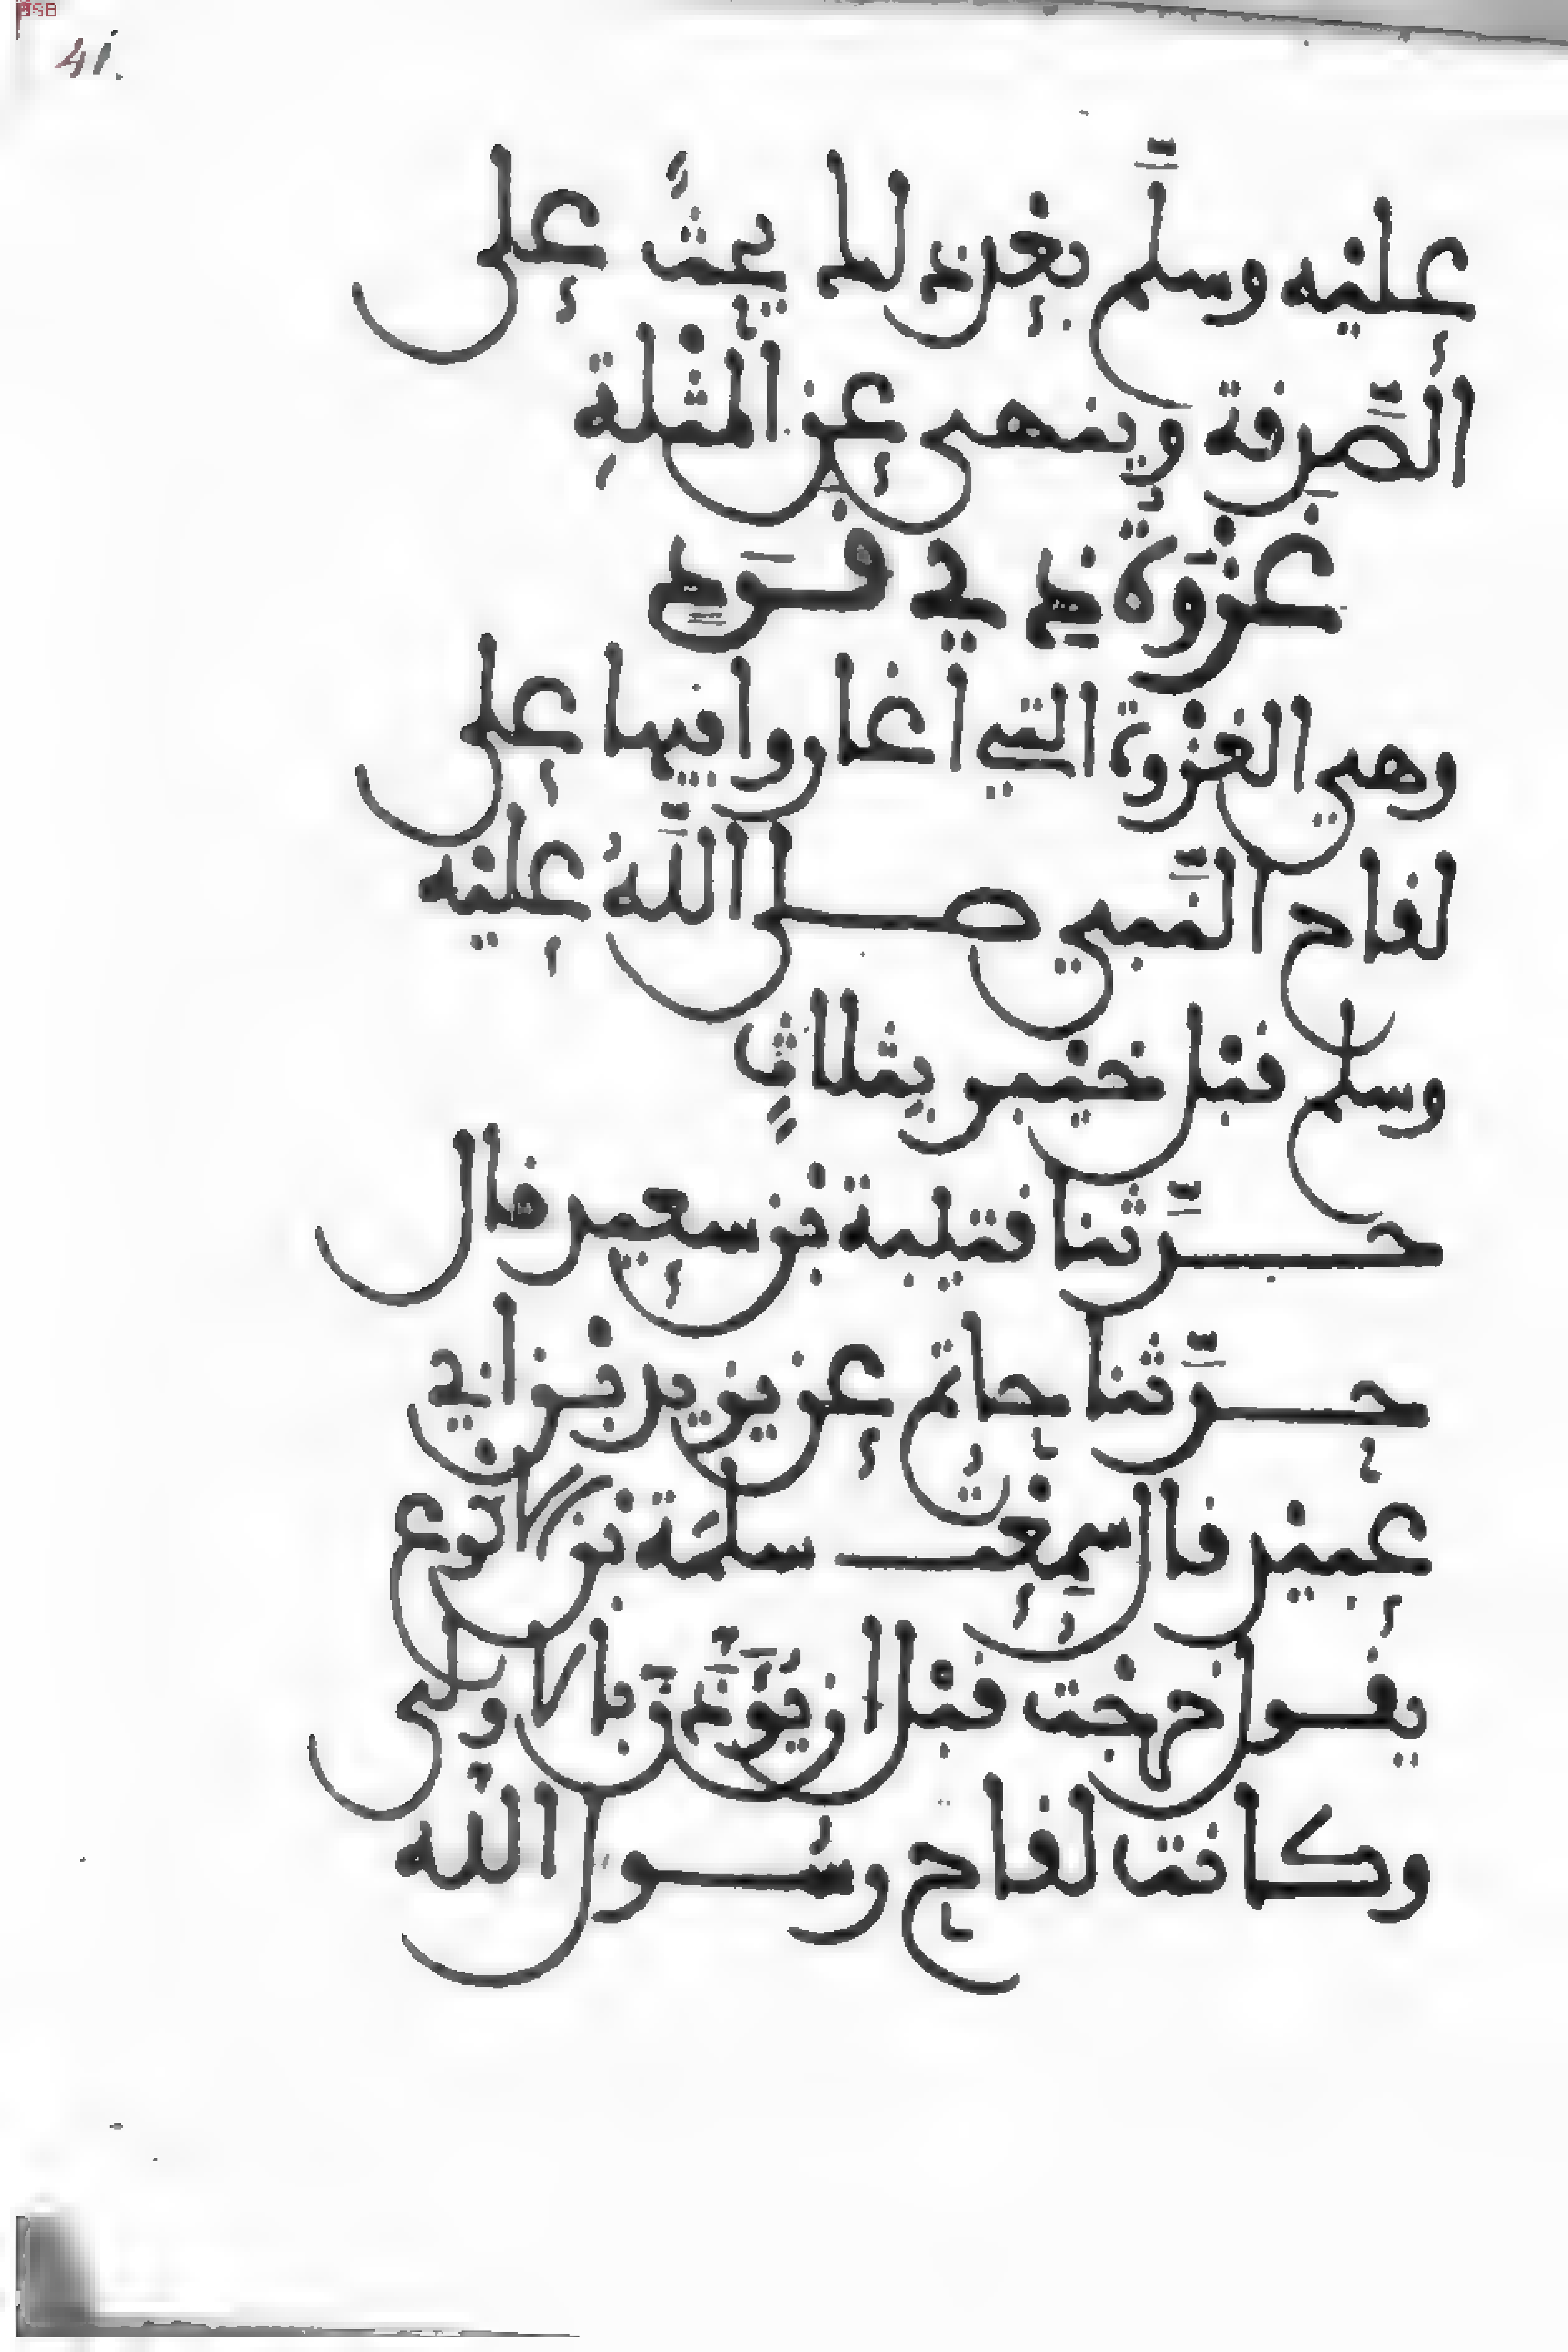 41.
عليه وسلم بعد ذلك يحثُّ على
الصَّدقة وينهى عن المثْلةِ
غَزْوَةُ ذي قَرَد
وهي الغزْوة التي أغاروا فيها على
لقاح النَّبي صلى اللهُ عليْه
وسلم قبْل خيْبر بثلاثٍ
حدَّثنا قتيبة بْن سعيد قال
حدَّثنا حاتمُ عن يزيد بْن أبي
عبيْد قال سمِعْت سلمَة بْن الأكْوع
يقول خرجْت قبْل ان يُؤَذَّنَ بالأولى
وكانت لقاح رسُول الله